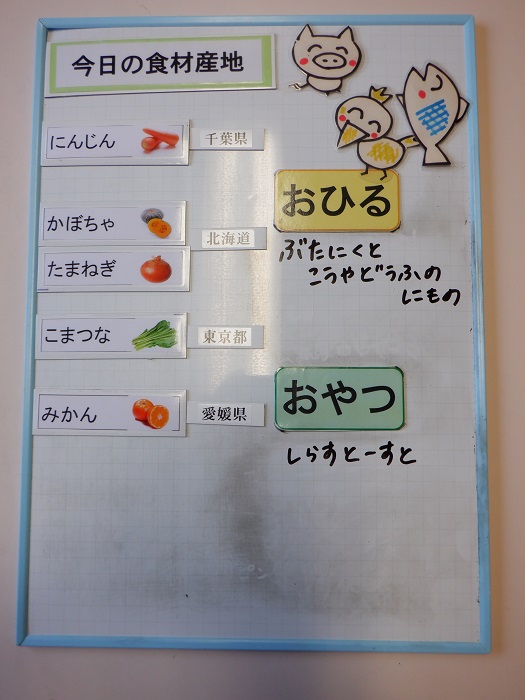 今日の食材産地
にんじん 千葉県
かぼちゃ
北海道
たまねぎ
こまつな 東京都
みかん 愛媛県
おひる
ぶたにくと
こうやどうふの
にもの
おやつ
しらすとーすと